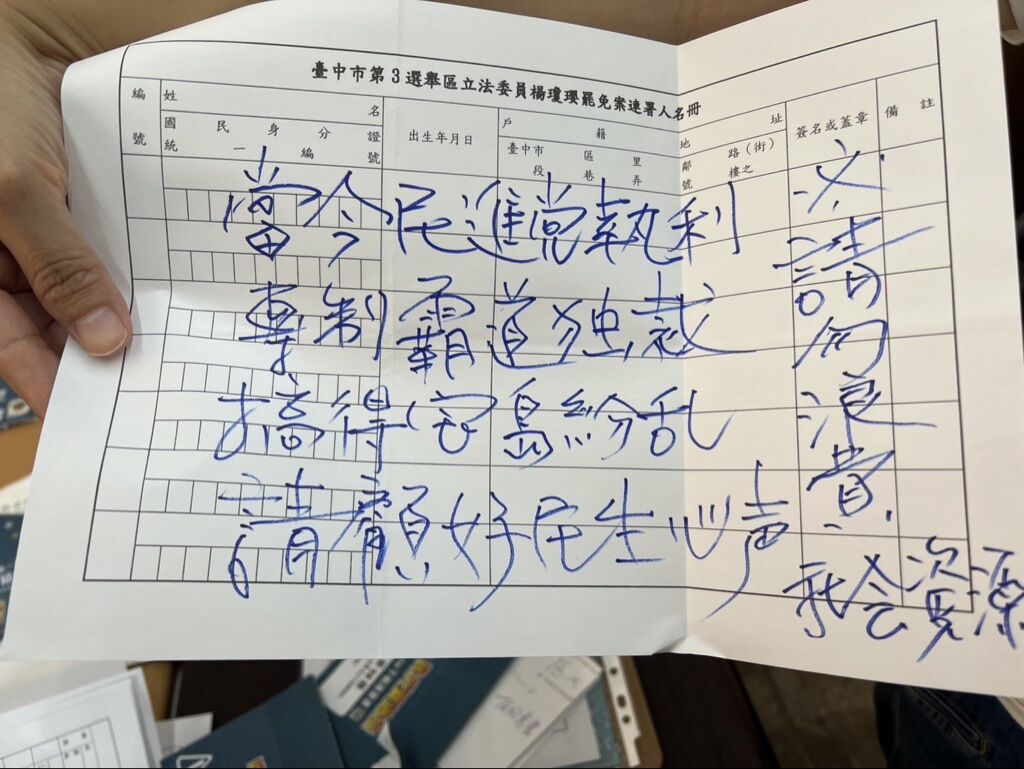 臺中市第3選舉區立法委員楊瓊瓔罷免案連署人名冊
編號
姓名
國民身分證
統一編號
出生年月日
戶籍地址
臺中市 區 里 鄰 路(街)
段 巷 弄 號 樓之
簽名或蓋章
備註
當今民進党執利
專制霸道独裁
搞得宝島紛乱
請顧好民生心声
必請勿浪費
社会資源